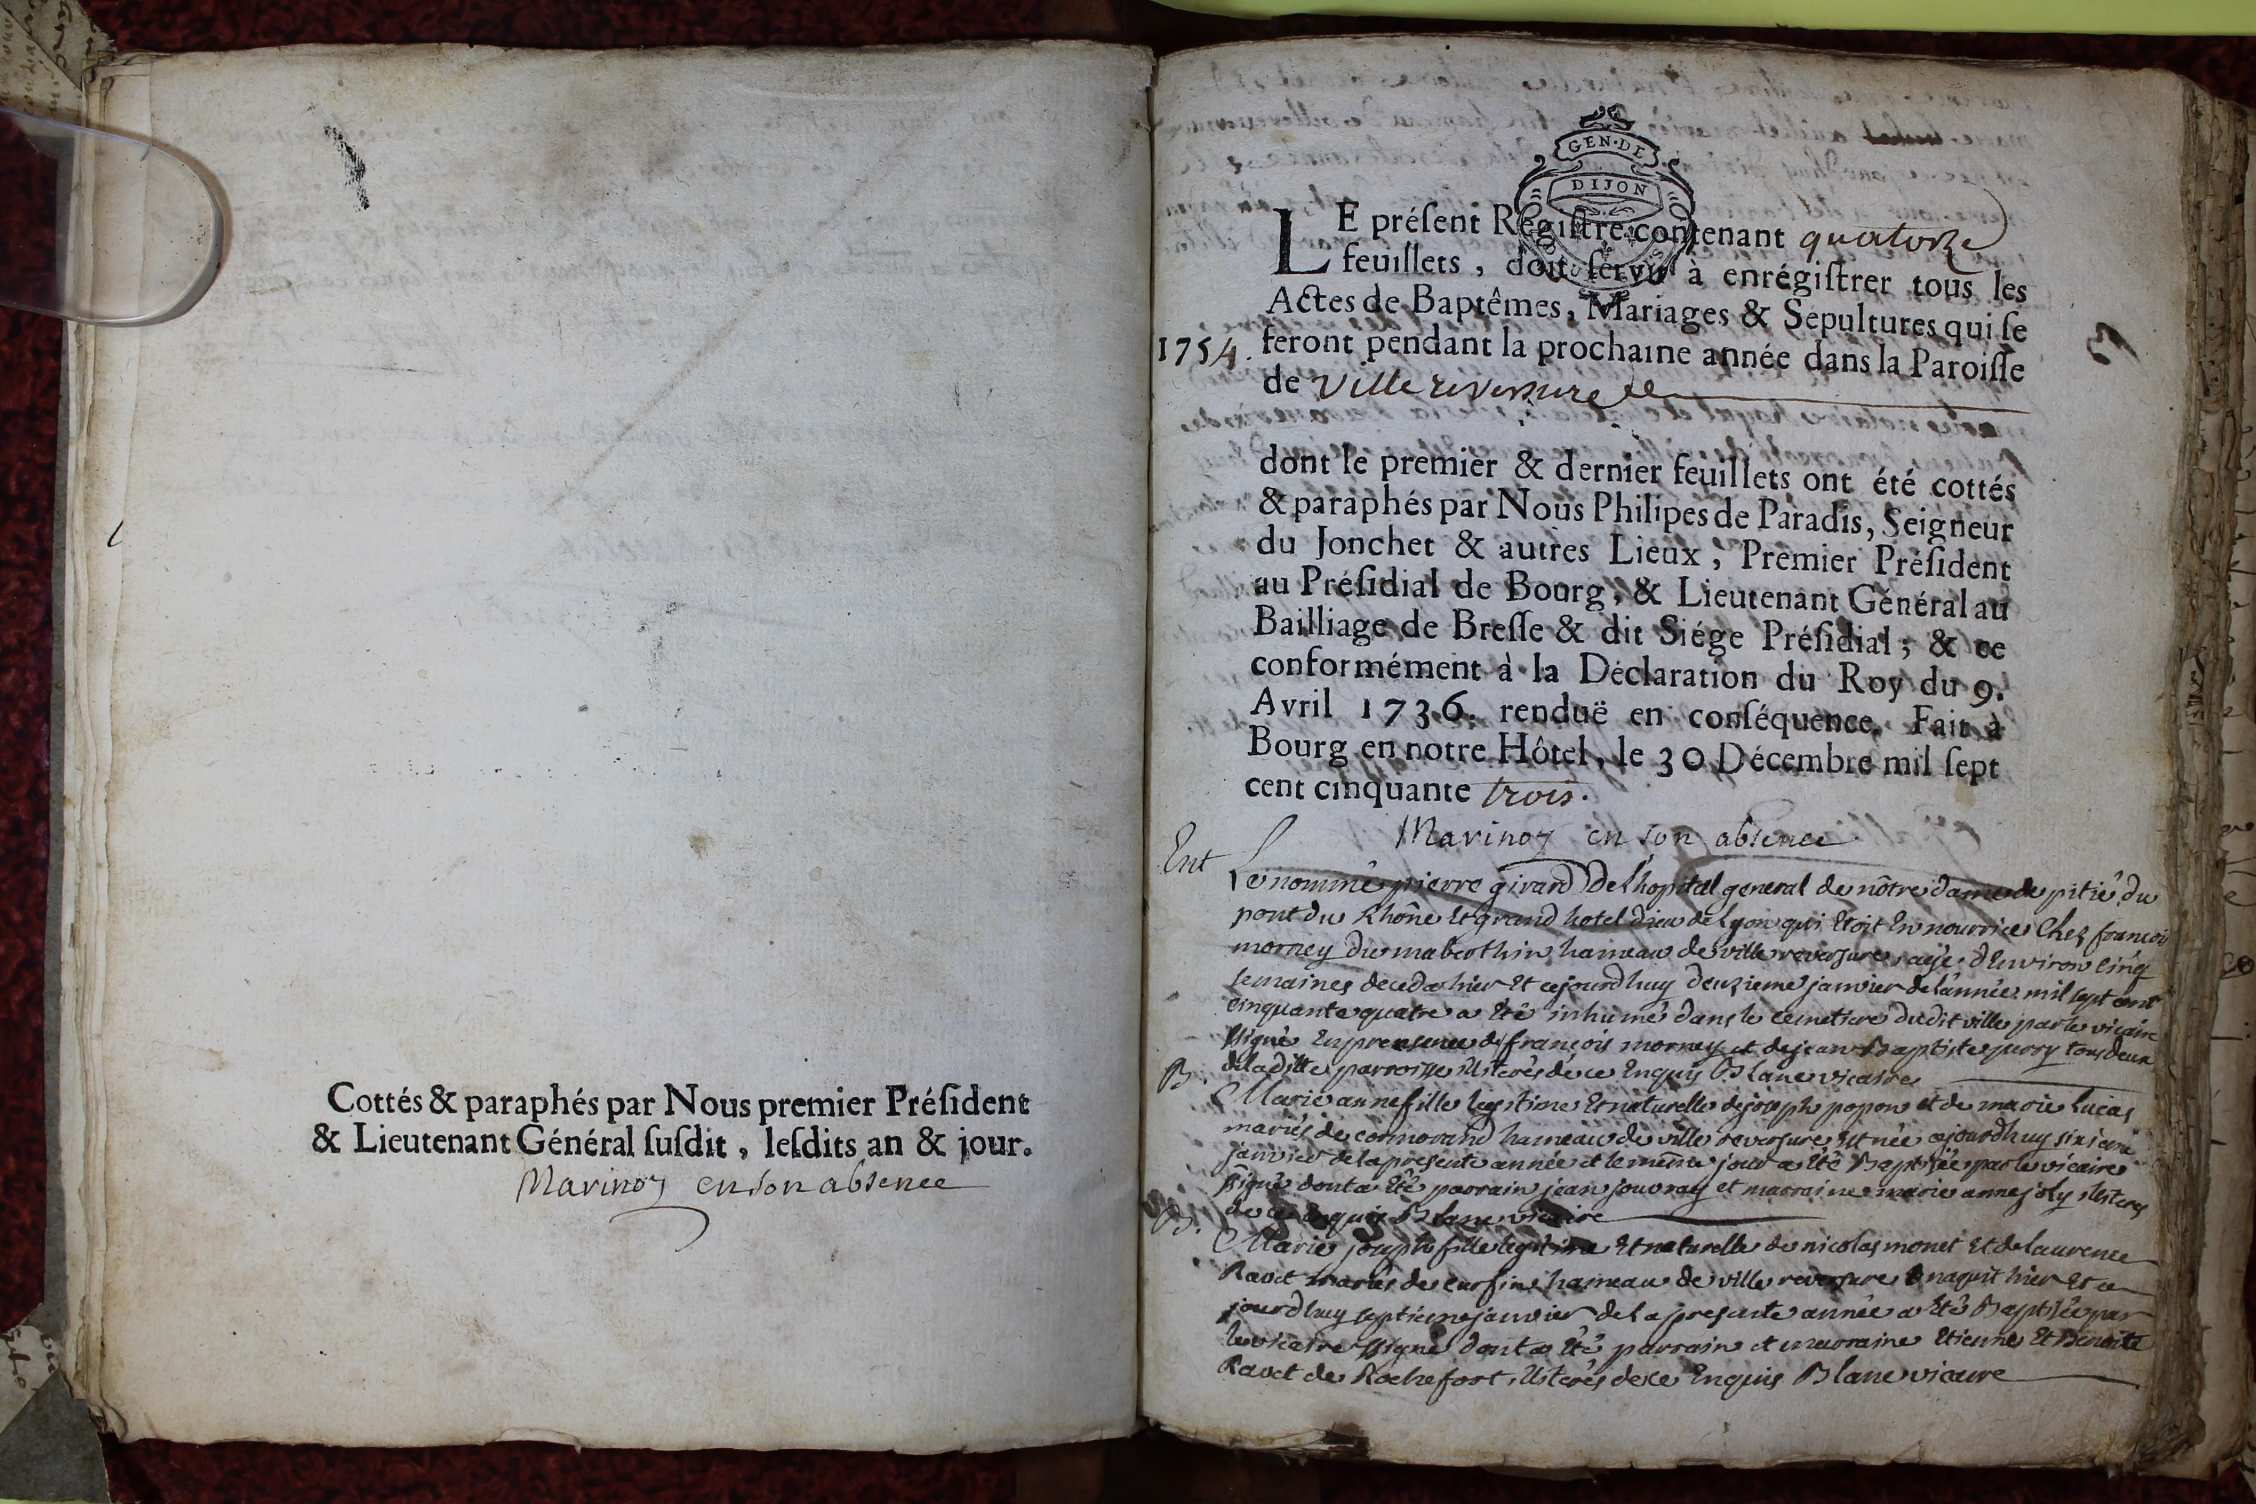 Cottés & paraphés par Nous premier Préſident
& Lieutenant Général ſuſdit, leſdits an & jour.
Marinoz en son absence
GEN·DE
DIJON
LE préſent Régiſtre contenant quatorze
feuillets, doit ſervir à enrégiſtrer tous les
Actes de Baptêmes, Mariages & Sépultures qui ſe
1754. feront pendant la prochaine année dans la Paroiſſe
de Ville reversure
dont le premier & dernier feuillets ont été cottés
& paraphés par Nous Philipes de Paradis, Seigneur
du Jonchet & autres Lieux, Premier Préſident
au Préſidial de Bourg, & Lieutenant Général au
Bailliage de Breſſe & dit Siége Préſidial; & ce
conformément à la Déclaration du Roy du 9.
Avril 1736. renduë en conſéquence. Fait à
Bourg en notre Hôtel, le 30 Décembre mil ſept
cent cinquante trois.
Marinoz en son absence
Ent Le nommé pierre girard De l'hopital general de nôtre dame de pitié du
pont du Rhône Et grand hotel dieu de Lyon qui Etoit En nourrice Chez francois
morney du maberthin hameau de ville reversure, agé d'Environ cinq
semaines deceda hier Et cejourdhuy deuzieme janvier de l'année mil sept cent
cinquante quatre a Eté inhumé dans le cemetiere dudit ville par le vicaire
ssigné En presence de françois morney et de jean Baptiste jurry tous deux
de la ditte parroisse illiterés de ce Enquis Blanc vicaire
B. Marie anne fille legitime Et naturelle de joseph popon et de marie Lucas
mariés de cormorand hameau de ville reversure est née cejourdhuy sixieme
janvier de la presente année et le même jour a Eté Baptisée par le vicaire
ssigné dont a Eté parrain jean jouvray et marraine marie anne joly illiterés
de ce Enquis Blanc vicaire
B. Marie joseph fille legitime Et naturelle de nicolas monet Et de laurence
Ravet mariés de curfin hameau de ville reversure naquit hier Et ce
jourdhuy septieme janvier de la presente année a Eté Baptisée par
le vicaire ssigné dont a Eté parrain et marraine Etienne Et Benoite
Ravet de Rochefort illiterés de ce Enquis Blanc vicaire